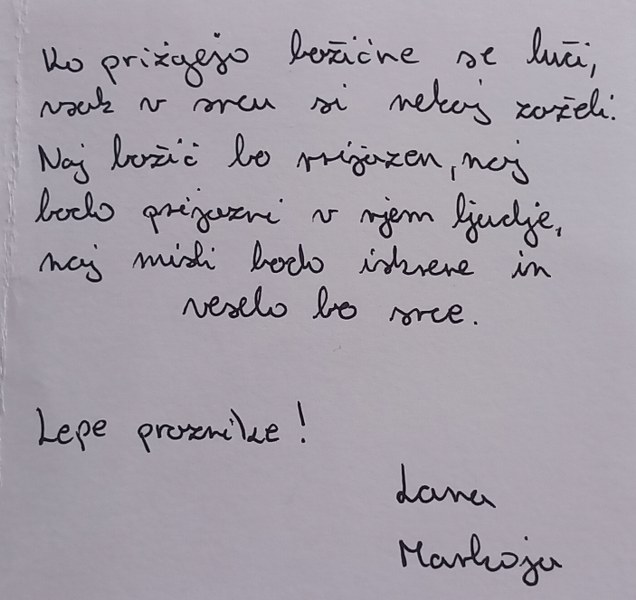 Ko prižgejo božične se luči,
vsak v srcu si nekaj zaželi.
Naj božič bo prijazen, naj
bodo prijazni v njem ljudje,
naj misli bodo iskrene in
veselo bo srce.
Lepe praznike!
Lana